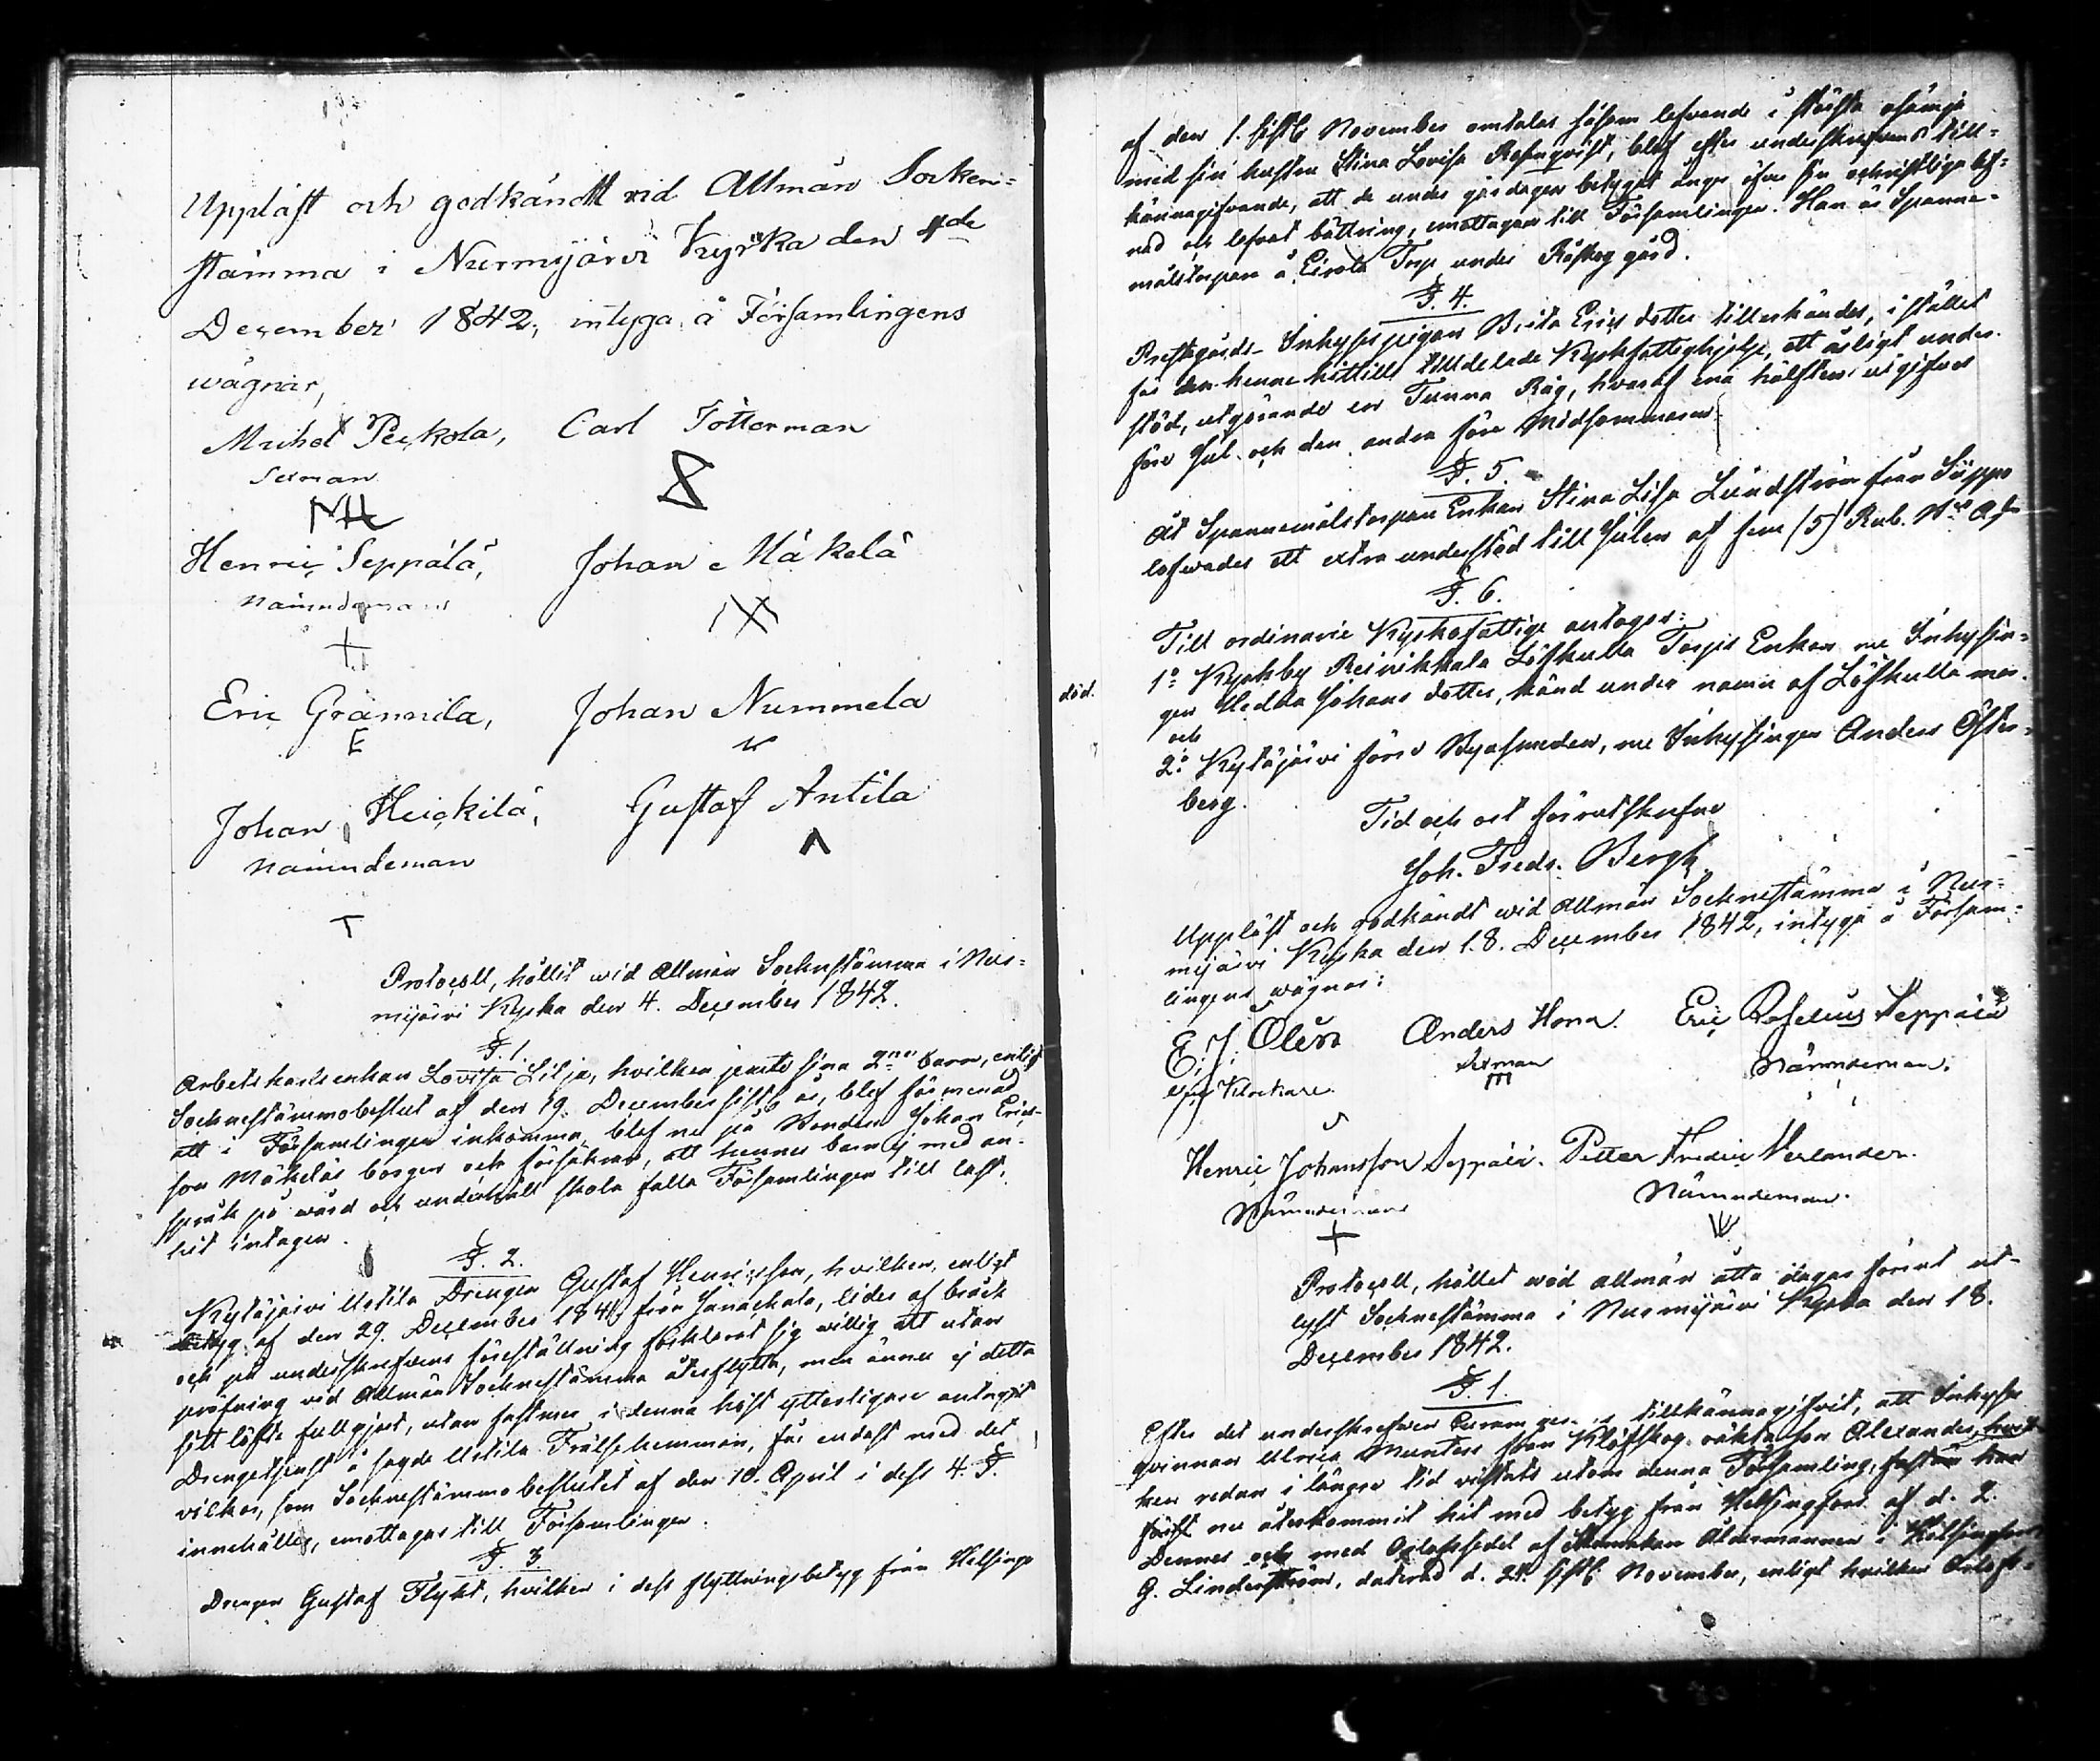 Uppläst och godkändt vid Allmän Socken=
stämma i Nurmijärvi Kyrka den 4de
December 1842, intyga å Församlingens
wägnar,
Michel Peckola, Carl Tötterman
Sexman
Henric Seppälä, Johan Mäkelä
Nämndeman
Eric Grännilä, Johan Nummela
E
Johan Heickilä, Gustaf Antila
Nämndeman
Protocoll, hållit wid Allmän Socknestämma i Nur=
mijärvi Kyrka den 4. December 1842.
§. 1.
Arbetskarlsenkan Lovisa Lilja, hvilken jemte sina 2ne barn, enligt
Socknestämmobeslut af den 19. December sistl. år, blef förmenad
att i Församlingen inkomma, blef nu på Bonden Johan Erics-
son Mäkeläs borgen och försäkran, att hennes barn ej med an-
språk på wård och underhåll skola falla Församlingen till last,
hit intagen.
§. 2.
Kytäjärvi Uotila Drengen Gustaf Henricsson, hvilken, enligt
betyg af den 29. December 1841, från Janackala, lider af bråck
och på underskrefvens föreställning förklarat sig willig att utan
pröfning vid Allmän Socknestämma återflytta, men ännu ej detta
sitt löfte fullgjort, utan fastmer i denna höst ytterligare antagit
Drengetjenst å sagde Uotila Frälsehemman, får endast med det
vilkor, som Socknestämmobeslutet af den 10. April i dess 4. §.
innehåller, emottagas till Församlingen.
§. 3.
Drengen Gustaf Flykt, hvilken i dess flyttningsbetyg från Helsinge
af den 1. sistl. November omtalas såsom lefvande i största osämja
med sin hustru Stina Lovisa Rosenqvist, blef efter underskrefvens till=
kännagifvande, att de under gårdagen betygat ånger öfver sin ochristliga lef=
nad och lofvat bättring, emottagen till Församlingen. Han är Spanne=
målstorpare å Eirola Torp under Råskog gård.
§. 4.
Prestgårds- Inhysespigan Brita Ericsdotter tillerkändes, i stället
för den henne hittills tilldelade Kyrkfattighjelp, ett årligt under-
stöd, utgörande en Tunna Råg, hvaraf ena hälften utgifves
före Jul och den andra före Midsommaren.
§. 5.
Åt Spannemålstorpare Enkan Stina Lisa Lundström från Siippo
lofvades ett extra understöd till Julen af fem (5) Rub. Bco Ass.
§. 6.
Till ordinarie Kyrkofattige antogos:
död.
1o Kyrkby Reinikkala Löfkulla Torps Enkan nu Inhysin=
gen Hedda Johansdotter, känd under namn af Löfkulla mor.
och
2o Kytäjärvi förre Byasmeden, nu Inhysingen Anders Öster=
berg.
Tid och ort förutskrefne
Joh. Fredr. Bergh.
Uppläst och godkändt wid Allmän Socknestämma i Nur=
mijärvi Kyrka den 18. December 1842, intyga å Försam=
lingens wägnar:
E. J. Olen Anders Hona. Eric Roselius Seppälä
Klockare. Sexman Nämndeman.
Henric Johansson Seppälä. Petter Fredric Verlander.
Nämndeman Nämndeman.
Protocoll, hållet wid allmän åtta dagar förut ut-
lyst Socknestämma i Nurmijärvi Kyrka den 18.
December 1842.
§. 1.
Efter det underskrefven tillkännagifvit, att Inhyses
qvinnan Ulrica Munters från Klöfskog oäkta son Alexander, hvil-
ken redan i längre tid vistats utom denna Församling, fastän han
först nu återkommit hit med betyg från Helsingfors af d. 2.
Dennes och med Orlofssedel af Åldermannen i Helsingfors
G. Linderström, daterad d. 24. sistl. November, enligt hvilken Orlofs=